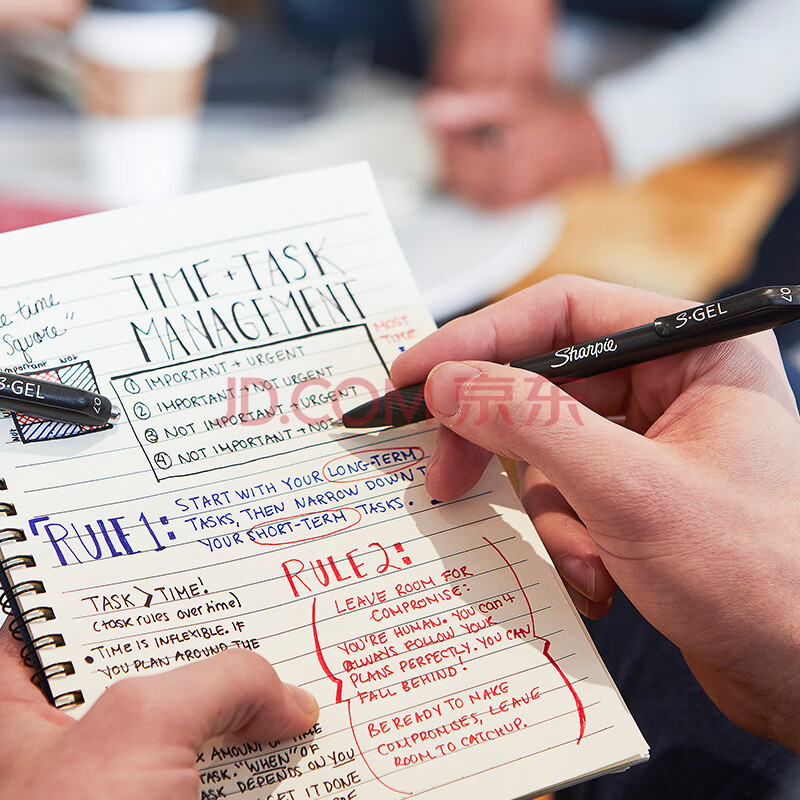 TIME + TASK
MANAGEMENT
e time
Square"
Important Not
MOST
TIME
① IMPORTANT + URGENT
② IMPORTANT + NOT URGENT
③ NOT IMPORTANT + URGENT
④ NOT IMPORTANT + NOT
JD.COM 京东
Sharpie
S·GEL
07
S·GEL
07
RULE 1:
START WITH YOUR LONG-TERM
TASKS, THEN NARROW DOWN T
YOUR SHORT-TERM TASKS.
RULE 2:
LEAVE ROOM FOR
COMPROMISE:
YOU'RE HUMAN. YOU CAN'T
ALWAYS FOLLOW YOUR
PLANS PERFECTLY. YOU CAN
FALL BEHIND!
BE READY TO MAKE
COMPROMISES, LEAVE
ROOM TO CATCHUP.
TASK > TIME!
(task rules over time)
• TIME IS INFLEXIBLE. IF
YOU PLAN AROUND THE
X AMOUNT OF TIME
TASK. "WHEN" OF
ASK DEPENDS ON YOU
GET IT DONE